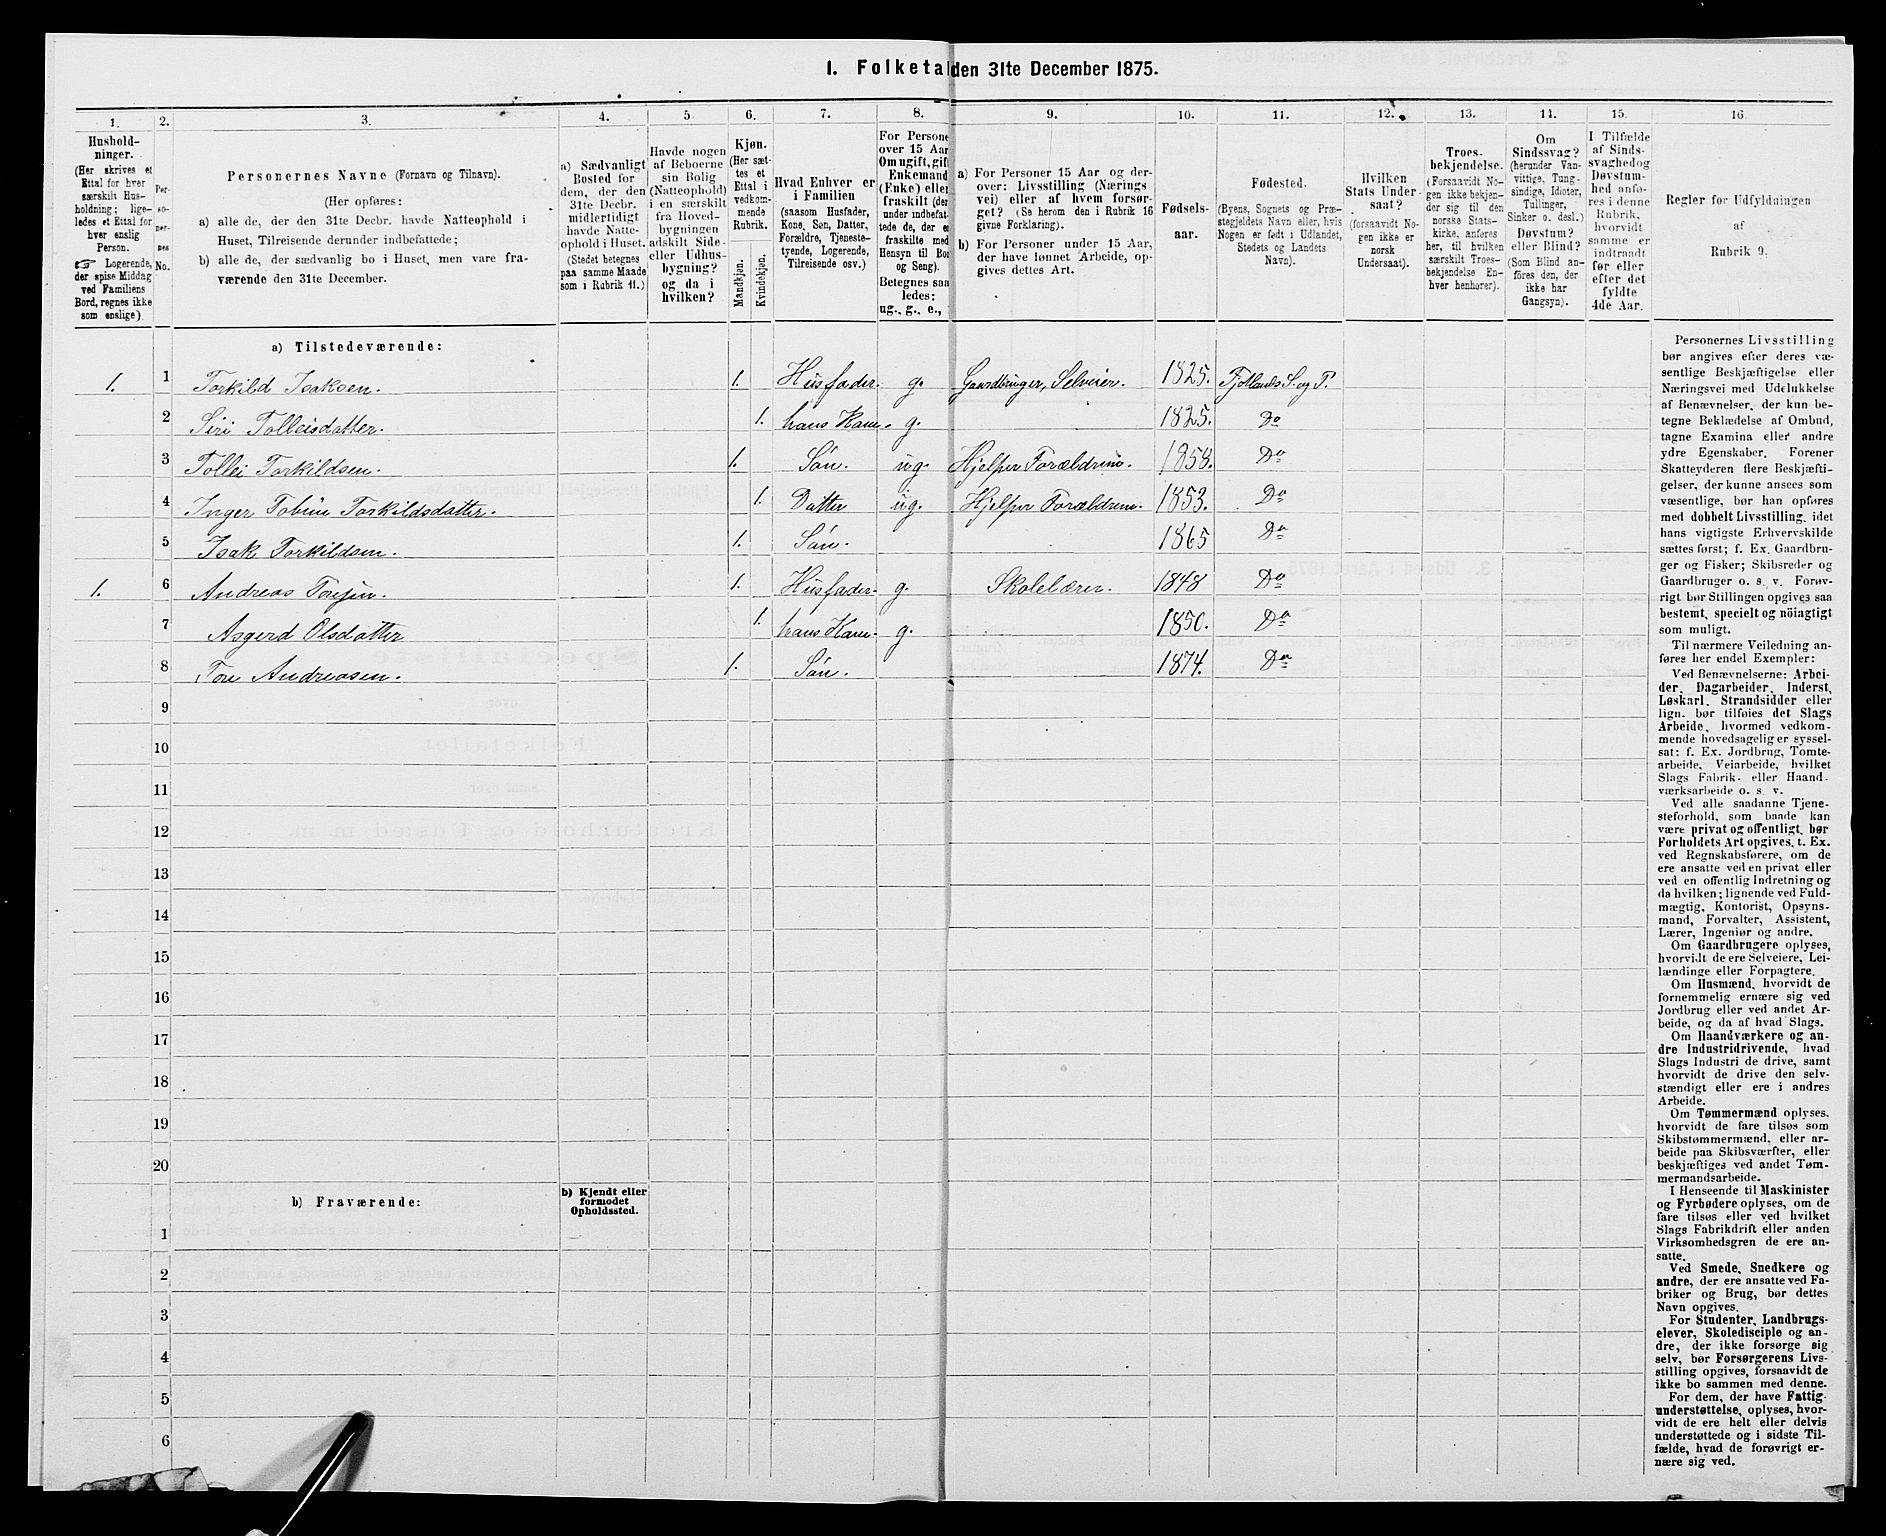 I. Folketal den 31te December 1875.
1.
2.
3.
4.
5.
6.
7.
8.
9.
10.
11.
12.
13.
14.
15.
16.
Hushold-
ninger.
(Her skrives et
Ettal for hver
særskilt Hus-
holdning; lige-
ledes et Ettal for
hver enslig
Person.
☞ Logerende,
der spise Middag
ved Familiens
Bord, regnes ikke
som enslige)
Per-
so-
ner-
nes
No.
Personernes Navne (Fornavn og Tilnavn).
(Her opføres:
a) alle de, der den 31te Decbr. havde Natteophold i
Huset, Tilreisende derunder indbefattede;
b) alle de, der sædvanlig bo i Huset, men vare fra-
værende den 31te December.
a) Sædvanligt
Bosted for
dem, der den
31te Decbr.
midlertidigt
havde Natte-
ophold i Huset.
(Stedet betegnes
paa samme Maade
som i Rubrik 11.)
Havde nogen
af Beboerne
sin Bolig
(Natteophold)
i en særskilt
fra Hoved-
bygningen
adskilt Side-
eller Udhus-
bygning?
og da i
hvilken?
Kjøn.
(Her sæt-
tes et
Ettal i
vedkom-
mende
Rubrik.
Mandkjøn.
Kvindekjøn.
Hvad Enhver er
i Familien
(saasom Husfader,
Kone, Søn, Datter,
Forældre, Tjeneste-
tyende, Logerende,
Tilreisende osv.)
For Persone
over 15 Aar
Om ugift, gift
Enkemand
(Enke) eller
fraskilt (der
under indbefat-
tede de, der e
fraskilte med
Hensyn til Bor
og Seng).
Betegnes saa
ledes:
ug., g., e.,
a) For Personer 15 Aar og der-
over: Livsstilling (Nærings
vei) eller af hvem forsør-
get? (Se herom den i Rubrik 16
givne Forklaring).
b) For Personer under 15 Aar,
der have lønnet Arbeide, op-
gives dettes Art.
Fødsels-
aar.
Fødested.
(Byens, Sognets og Præ-
stegjeldets Navn eller, hvis
Nogen er født i Udlandet,
Stedets og Landets
Navn).
Hvilken
Stats Under-
saat?
(forsaavidt No-
gen ikke er
norsk
Undersaat).
Troes-
bekjendelse.
(Forsaavidt No-
gen ikke bekjen-
der sig til den
norske Stats-
kirke, anføres
her, til hvilken
særskilt Troes-
bekjendelse En-
hver henhører).
Om
Sindssvag?
(herunder Van-
vittige, Tung-
sindige, Idioter,
Tullinger,
Sinker o. desl.)
Døvstum?
eller Blind?
(Som Blind an-
føres den, der
ikke har
Gangsyn).
I Tilfælde
af Sinds-
svaghed og
Døvstum-
hed anfø-
res i denne
Rubrik,
hvorvidt
samme er
indtraadt
før eller
efter det
fyldte
4de Aar.
Regler for Udfyldningen
af
Rubrik 9.
a) Tilstedeværende:
1. 1 Torkild Isaksen. 1. Husfader. g. Gaardbruger, Selveier. 1825. Fjotlands S. og P.
2 Siri Tolleisdatter. 1. hans Kone. g. 1825. Do
3 Tollei Torkildsen. 1. Søn. ug. Hjelper Forældrene. 1858. Do
4 Inger Tobine Torkildsdatter. 1. Datter ug. Hjelper Forældrene. 1853. Do
5 Isak Torkildsen. 1. Søn. 1865 Do
1. 6 Andreas 1. Husfader. g. Skolelærer. 1848 Do
7 Asgerd Olsdatter 1. hans Kone. g. 1850. Do
8 Tore Andreasen. 1. Søn. 1874. Do
9
10
11
12
13
14
15
16
17
18
19
20
b) Fraværende:
b) Kjendt eller
formodet
Opholdssted.
1
2
3
4
5
6
Personernes Livsstilling
bør angives efter deres væ-
sentlige Beskjæftigelse eller
Næringsvei med Udelukkelse
af Benævnelser, der kun be-
tegne Beklædelse af Ombud,
tagne Examina eller andre
ydre Egenskaber. Forener
Skatteyderen flere Beskjæfti-
gelser, der kunne ansees som
væsentlige, bør han opføres
med dobbelt Livsstilling, idet
hans vigtigste Erhvervskilde
sættes først; f. Ex. Gaardbru-
ger og Fisker; Skibsreder og
Gaardbruger o. s. v. Forøv-
rigt bør Stillingen opgives saa
bestemt, specielt og nøiagtigt
som muligt.
Til nærmere Veiledning an-
føres her endel Exempler:
Ved Benævnelserne: Arbei-
der, Dagarbeider, Inderst,
Løskarl, Strandsidder eller
lign. bør tilføies det Slags
Arbeide, hvormed vedkom-
mende hovedsagelig er syssel-
sat: f. Ex. Jordbrug, Tomte-
arbeide, Veiarbeide, hvilket
Slags Fabrik- eller Haand-
værksarbeide o. s. v.
Ved alle saadanne Tjene-
steforhold, som baade kan
være privat og offentligt, bør
Forholdets Art opgives, t. Ex.
ved Regnskabsførere, om de
ere ansatte ved en privat eller
ved en offentlig Indretning og
da hvilken; lignende ved Fuld-
mægtig, Kontorist, Opsyns-
mand, Forvalter, Assistent,
Lærer, Ingeniør og andre.
Om Gaardbrugere oplyses,
hvorvidt de ere Selveiere, Lei-
lændinge eller Forpagtere.
Om Husmænd, hvorvidt de
fornemmelig ernære sig ved
Jordbrug eller ved andet Ar-
beide, og da af hvad Slags.
Om Haandværkere og an-
dre Industridrivende, hvad
Slags Industri de drive, samt
hvorvidt de drive den selv-
stændigt eller ere i andres
Arbeide.
Om Tømmermænd oplyses,
hvorvidt de fare tilsøs som
Skibstømmermænd, eller ar-
beide paa Skibsværfter, eller
beskjæftiges ved andet Tøm-
mermandsarbeide.
I Henseende til Maskinister
og Fyrbødere oplyses, om de
fare tilsøs eller ved hvilket
Slags Fabrikdrift eller anden
Virksomhedsgren de ere an-
satte.
Ved Smede, Snedkere og
andre, der ere ansatte ved Fa-
briker og Brug, bør dettes
Navn opgives.
For Studenter, Landbrugs-
elever, Skoledisciple og an-
dre, der ikke forsørge sig
selv, bør Forsørgerens Livs-
stilling opgives, forsaavidt de
ikke bo sammen med denne.
For dem, der have Fattig-
understøttelse, oplyses, hvor-
vidt de ere helt eller delvis
understøttede og i sidste Til-
fælde, hvad de forøvrigt er-
nære sig ved.